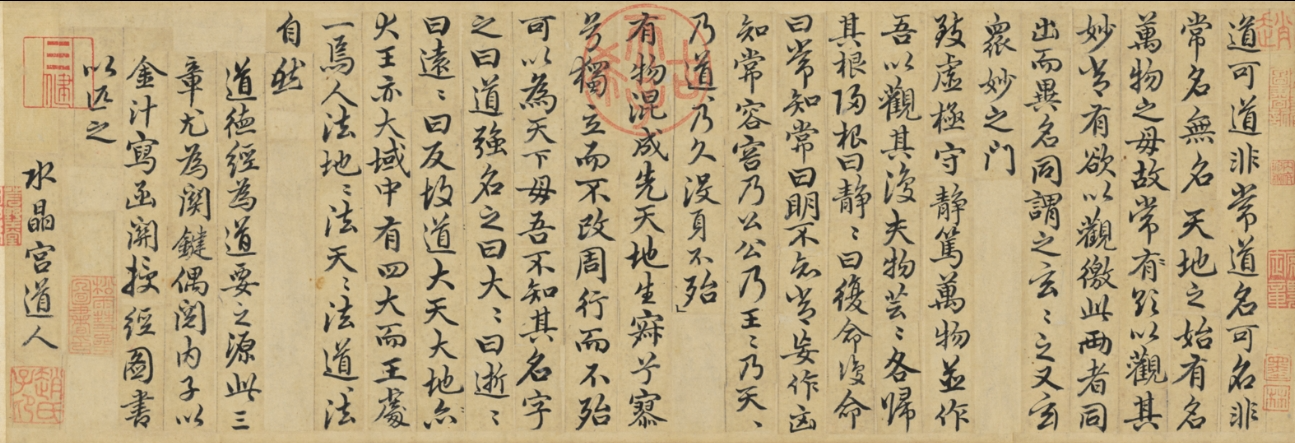 道可道非常道名可名非
常名無名天地之始有名
萬物之母故常有欲以觀其
妙常有欲以觀徼此兩者同
出而異名同謂之玄〻之又玄
衆妙之門
致虛極守靜篤萬物並作
吾以觀其復夫物芸〻各歸
其根歸根曰靜〻曰復命復命
曰常知常曰明不知常妄作凶
知常容容乃公公乃王〻乃天〻
乃道乃久沒身不殆
有物混成先天地生寂兮寥
兮獨立而不改周行而不殆
可以為天下母吾不知其名字
之曰道強名之曰大〻曰逝〻
曰遠〻曰反故道大天大地亦
大王亦大域中有四大而王處
一焉人法地〻法天〻法道〻法
自然
道德經為道要之源此三
章尤為關鍵偶閱內子以
金汁寫函關授經圖書
以匹之
水晶宮道人
趙
趙氏子印